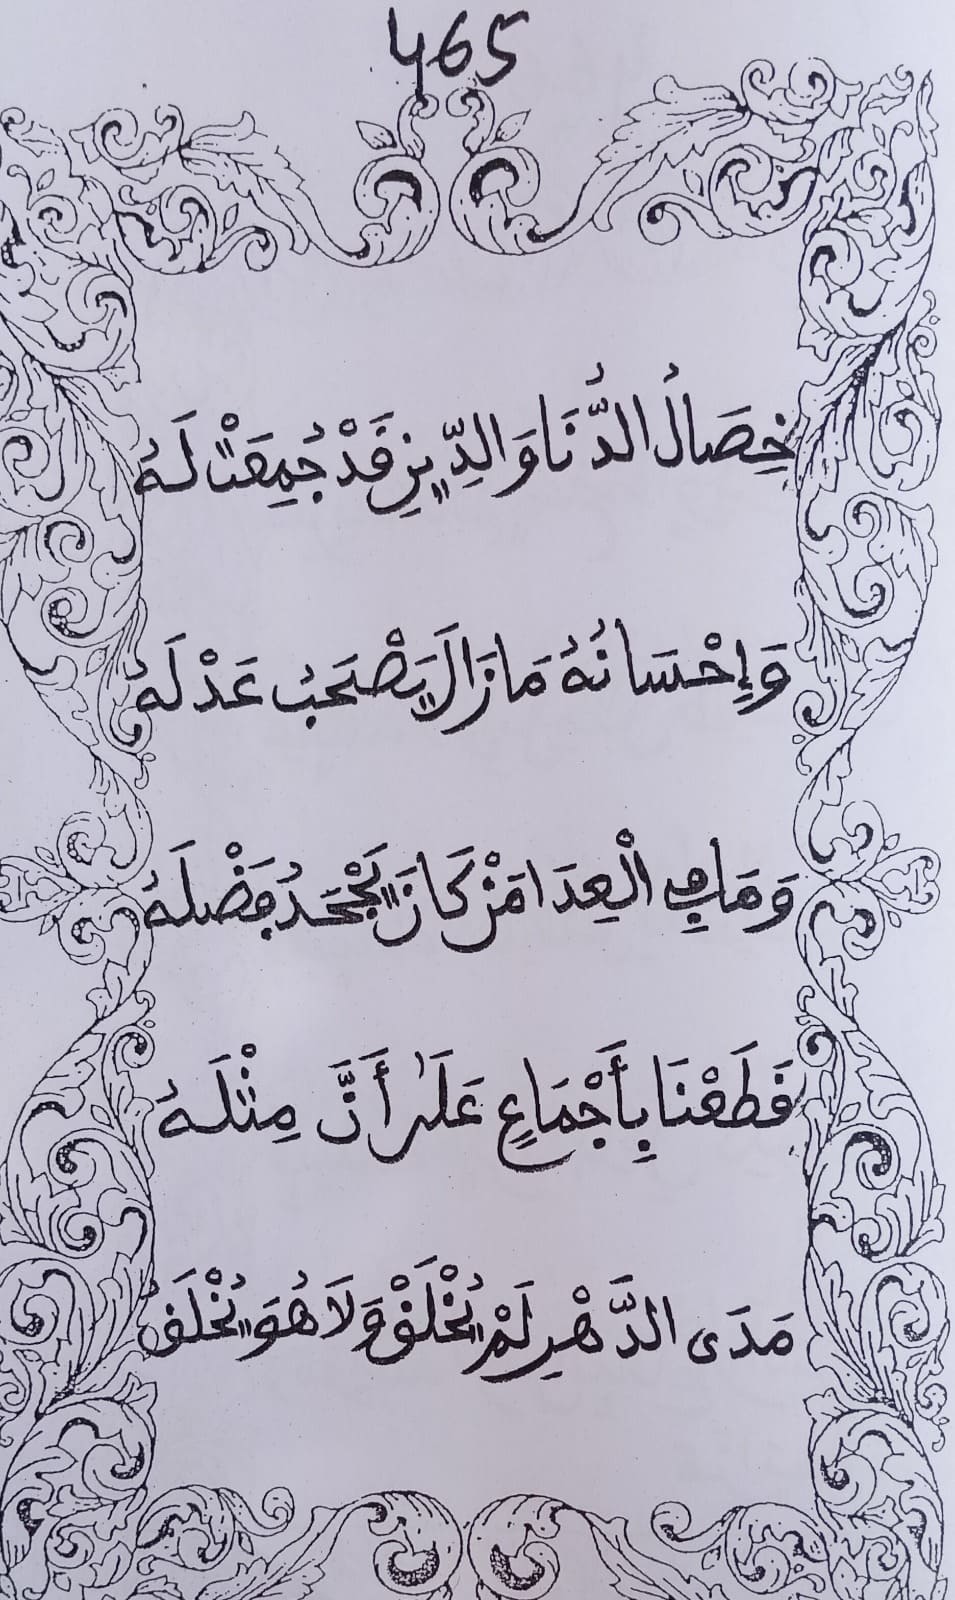 465
خِصَالُ الدُّنَا وَالدِّينِ قَدْ جُمِعَتْ لَهُ
وَإِحْسَانُهُ مَا زَالَ يَصْحَبُ عَدْلَهُ
وَمَا فِي الْعِدَا مَنْ كَانَ يَجْحَدُ فَضْلَهُ
قَطَعْنَا بِأَجْمَاعٍ عَلَى أَنَّ مِثْلَهُ
مَدَى الدَّهْرِ لَمْ يُخْلَقْ وَلَا هُوَ يُخْلَقُ